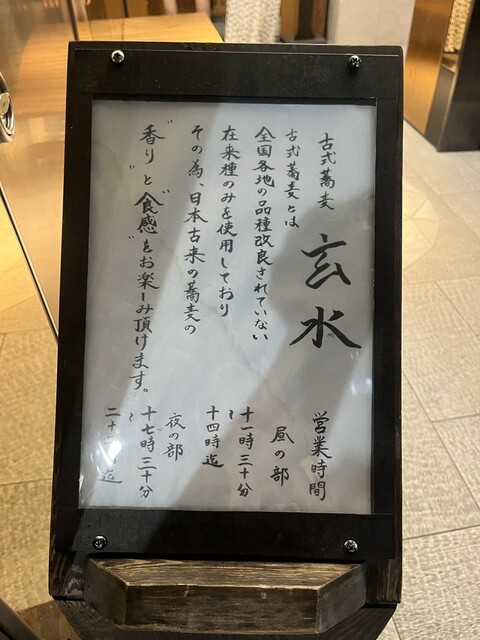 古式蕎麦
玄水
古式蕎麦とは
全国各地の品種改良されていない
在来種のみを使用しており
その為、日本古来の蕎麦の
"香り"と"食感"をお楽しみ頂けます。
営業時間
昼の部
十一時三十分
〜
十四時迄
夜の部
十七時三十分
〜
二十
迄